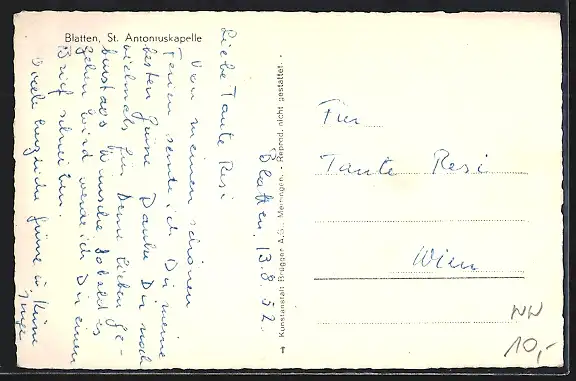 Blatten, St. Antoniuskapelle
Blatten, 13.8.52.
Liebe Tante Resi
Von meinen schönen
Ferien sende ich Dir meine
besten Grüsse. Danke Dir noch
vielmals für Deine lieben Ge-
burtstags Wünsche. Sobald es
gehen wird werde ich Dir einen
Brief schreiben.
Viele herzliche Grüsse u. Küsse
Inge
Kunstanstalt Brügger A.G., Meiringen. - Reprod. nicht gestattet. -
Für
Tante Resi
Wien
WW
10,-